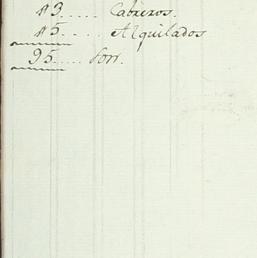 13..... Cabreros.
15.... Alquilados
95..... Son.